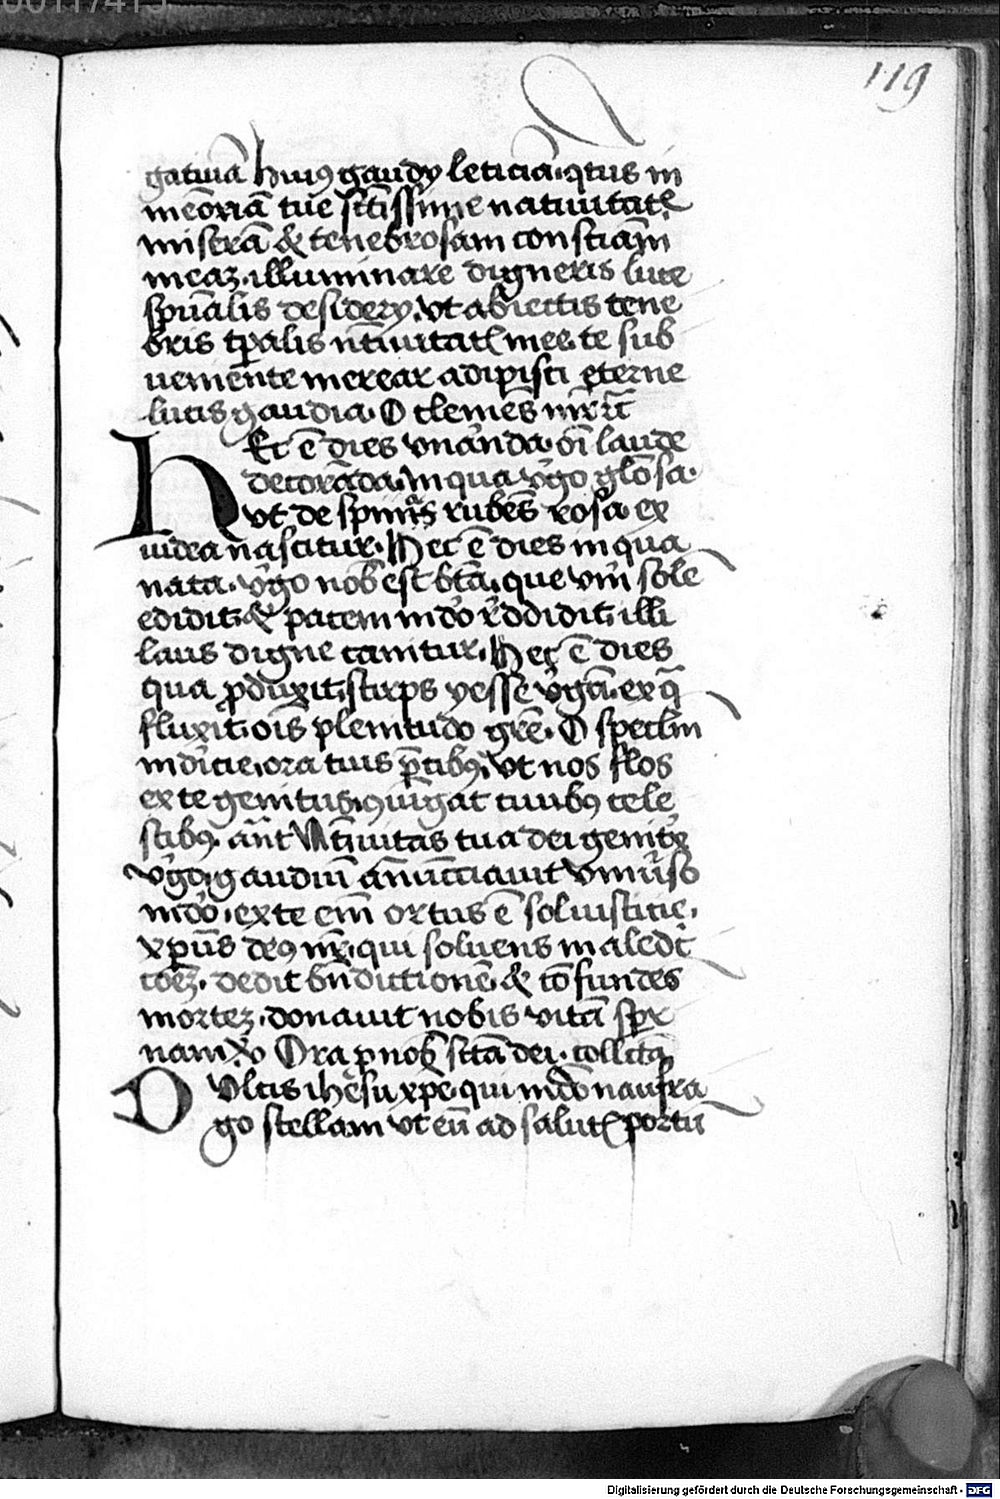 119
gatiuā huiꝰ gaudy leticiā. qtus in
meōriā tue sct̄issime natiuitatꝭ
miserā & tenebrosam consciām
meaꝫ. illuminare digneris luce
spūalis desidery. vt abiectis tene
bris tp̄alis nt̄iuitatꝭ mee. te sub
ueniente merear adipisci eterne
lucis gaudia. O clemēs
Ec ē dies vnānda. oī laude
decorāda. In qua v̓go glōsa.
vt de spinis rubēs rosa ex
iudea nascitur. Hec ē dies in qua
nata. v̓go nob̄ est bt̄a. que vm̄ sole
edidit. & patem mdo̓ r̓ddidit. illi
laus digne canitur. Hec ē dies
qua ꝓduxit. stirps yesse v̓gā. ex q̄
fluxit. oīs plenitudo grē. O specl̄m
mdicie. ora tuis p̄cibꝰ. vt nos flos
ex te genitus. ꝯiūgat ciuibꝰ cele
stibꝰ. an̄t Nt̄iuitas tua dei genit̓x
v̓go. gaudiū an̄ucciauit vniu̓so
mdo̓. ex te em̄ ortus ē sol iusticie.
xp̄us deꝰ nr̄. qui soluens maledi̓c
coēꝫ. dedit bn̄dictionē. & cōfundēs
morteꝫ. donauit nobis vitā sp̄r
nam Ora ꝓ nob̄ sctā dei. collcta
Vlcis ihēsu xpē. qui mdō naufra
go stellam vt eū ad salutꝭ portū
Digitalisierung gefördert durch die Deutsche Forschungsgemeinschaft - DFG